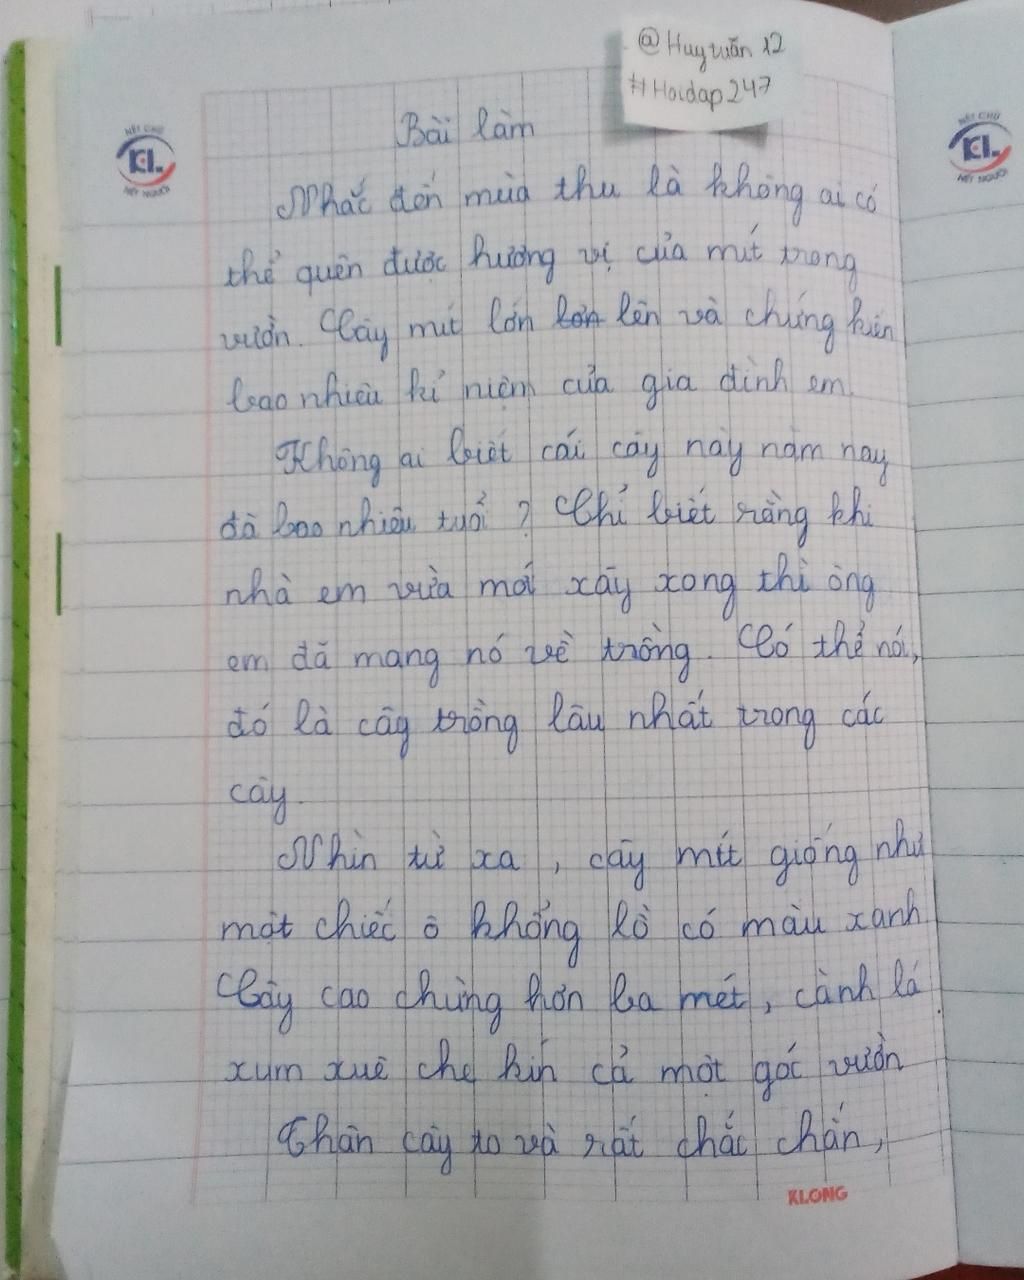 @Huytuấn12
#Hoidap247
Bài làm
NÉT CHỮ
KL
NẾT NGƯỜI
NÉT CHỮ
KL
NẾT NGƯỜI
Nhắc đến mùa thu là không ai có
thể quên được hương vị của mít trong
vườn. Cây mít lớn lên và chứng kiến
bao nhiêu kỉ niệm của gia đình em.
Không ai biết cái cây này năm nay
đã bao nhiêu tuổi ? Chỉ biết rằng khi
nhà em vừa mới xây xong thì ông
em đã mang nó về trồng. Có thể nói,
đó là cây trồng lâu nhất trong các
cây.
Nhìn từ xa , cây mít giống như
một chiếc ô khổng lồ có màu xanh
Cây cao chừng hơn ba mét, cành lá
xum xuê che kín cả một góc vườn
Thân cây to và rất chắc chắn,
KLONG